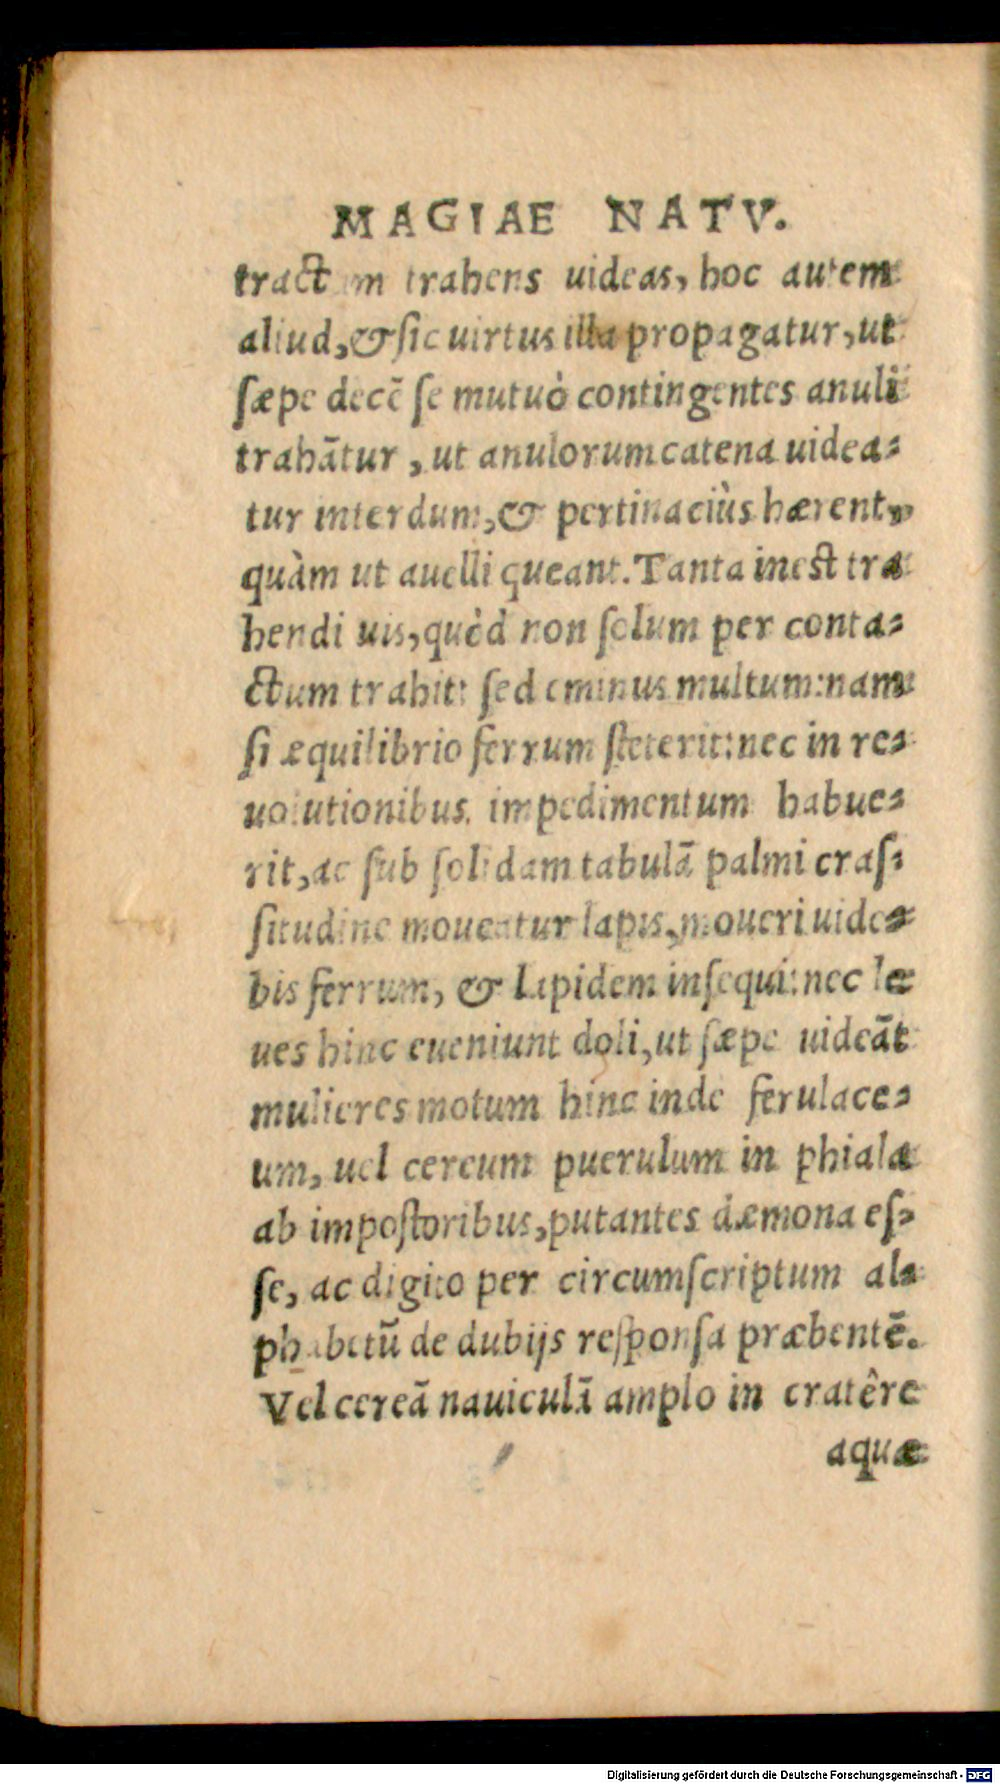 MAGIAE NATV.
tractum trahens uideas, hoc autem
aliud, & ſic uirtus illa propagatur, ut
ſæpe decē ſe mutuò contingentes anuli
trahātur, ut anulorum catena uidea-
tur interdum, & pertinaciùs hærent,
quàm ut auelli queant. Tanta ineſt tra
hendi uis, quòd non ſolum per conta-
ctum trahit: ſed eminus multum: nam
ſi æquilibrio ferrum ſteterit: nec in re-
uolutionibus impedimentum habue-
rit, ac ſub ſolidam tabulā palmi craſ-
ſitudine moueatur lapis, moueri uide-
bis ferrum, & lapidem inſequi: nec le
ues hinc eueniunt doli, ut ſæpe uideāt
mulieres motum hinc inde ferulace-
um, uel cereum puerulum in phiala
ab impoſtoribus, putantes dæmona eſ-
ſe, ac digito per circumſcriptum al-
phabetū de dubijs reſponſa præbentē.
Vel cereā nauiculā amplo in cratêre
aquæ
Digitalisierung gefördert durch die Deutsche Forschungsgemeinschaft - DFG